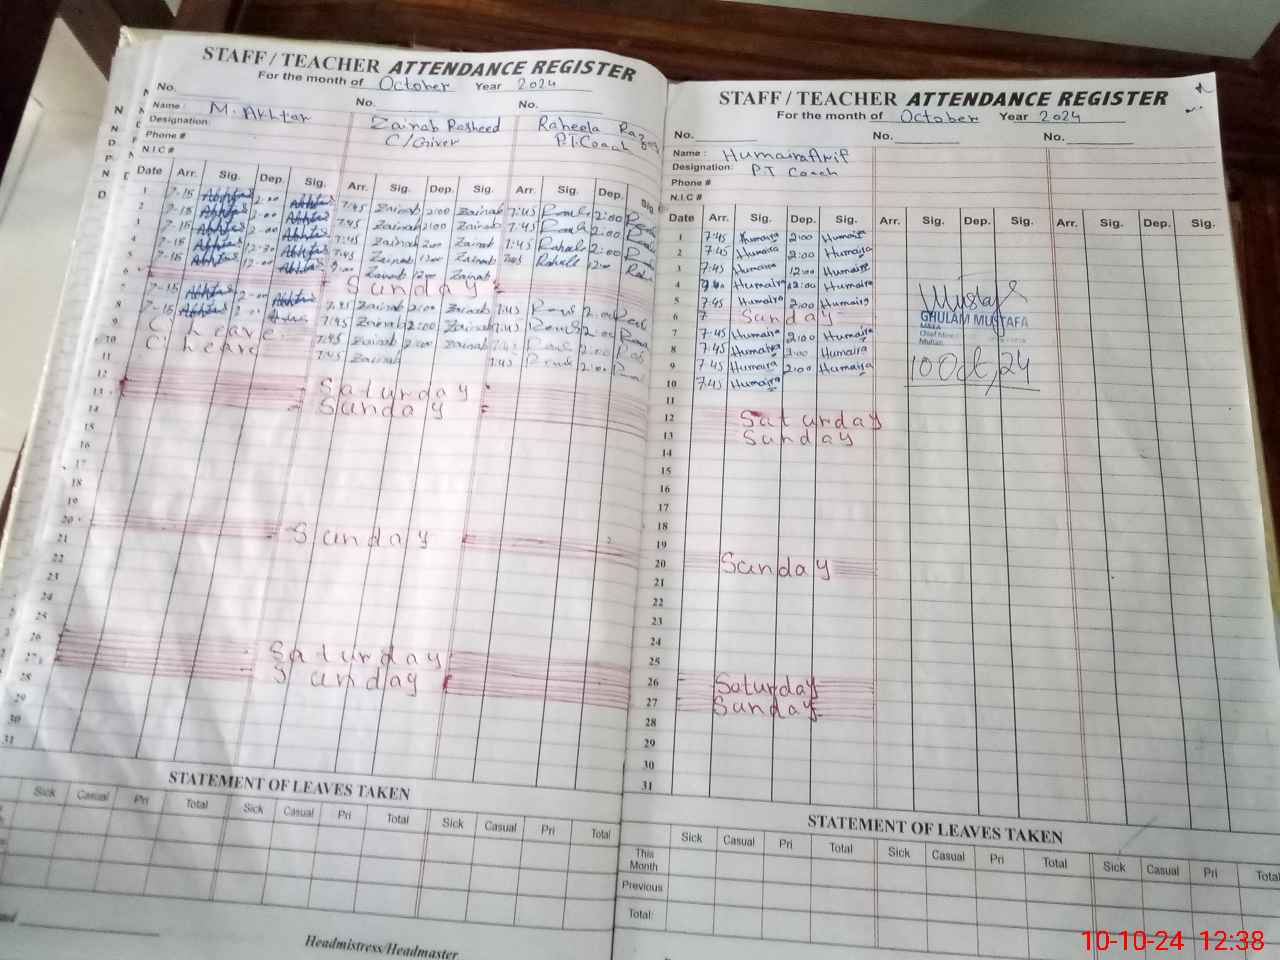 STAFF / TEACHER ATTENDANCE REGISTER
For the month of October Year 2024
No. No. No.
Name : M. Akhtar Zainab Rasheed Raheela
Designation: C/Giver P.T. Coach
Phone #
N.I.C #
Date Arr. Sig. Dep. Sig. Arr. Sig. Dep. Sig. Arr. Sig. Dep. Sig.
1 7-15 Akhtar 2:00 Akhtar 7:45 Zainab 2:00 Zainab 7:45 2:00
2 7-15 Akhtar 2:00 Akhtar 7:45 Zainab 2:00 Zainab 7:45 2:00
7-15 Akhtar 2:00 Akhtar 7:45 Zainab 2:00 Zainab 7:45 Raheela 2:00
4 7-15 Akhtar 12:30 Akhtar 7:45 Zainab 12:00 Zainab 7:45 Raheela 12:00
5 7-15 Akhtar 12:00 Akhtar Zainab 12:00 Zainab
6 Sunday
7 7-15 2:00 Akhtar 7:45 Zainab 2:00 Zainab 7:45 2:00
8 7-15 2:00 7:45 Zainab 2:00 Zainab 7:45 2:00
9 C' Leave 7:45 Zainab 2:00 Zainab 7:45 2:00
10 C' Leave 7:45 Zainab 7:45 2:00
11
12 Saturday
13 Sunday
14
15
16
17
18
19
20 Sunday
21
22
23
24
25
26 Saturday
27 Sunday
28
29
30
31
STATEMENT OF LEAVES TAKEN
Sick Casual Pri Total Sick Casual Pri Total Sick Casual Pri Total
Headmistress/Headmaster
STAFF / TEACHER ATTENDANCE REGISTER
For the month of October Year 2024
No. No. No.
Name : Humaira Arif
Designation: P.T Coach
Phone #
N.I.C #
Date Arr. Sig. Dep. Sig. Arr. Sig. Dep. Sig. Arr. Sig. Dep. Sig.
1 7:45 Humaira 2:00 Humaira
2 7:45 Humaira 2:00 Humaira
3 7:45 Humaira 12:00 Humaira
4 Humaira 12:00 Humaira
5 7:45 Humaira 2:00 Humaira
6 Sunday
7 7:45 Humaira 2:00 Humaira
8 7:45 Humaira 2:00 Humaira
9 7:45 Humaira 2:00 Humaira
10 7:45 Humaira
11
12 Saturday
13 Sunday
14
15
16
17
18
19
20 Sunday
21
22
23
24
25
26 Saturday
27 Sunday
28
29
30
31
GHULAM MUSTAFA
10 Oct, 24
STATEMENT OF LEAVES TAKEN
Sick Casual Pri Total Sick Casual Pri Total Sick Casual Pri Total
This Month
Previous
Total
10-10-24 12:38